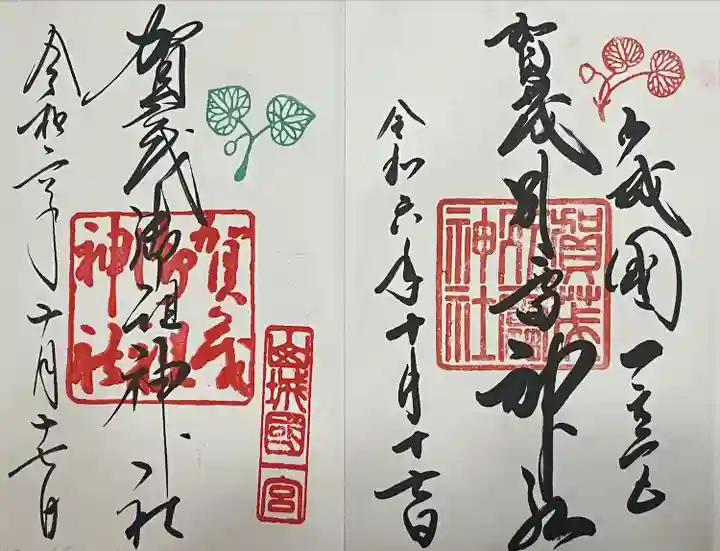 山城國一宮
賀茂別雷神社
賀茂別雷神社
令和六年十月十七日
賀茂御祖神社
賀茂御祖神社
山城國一宮
令和六年十月十七日